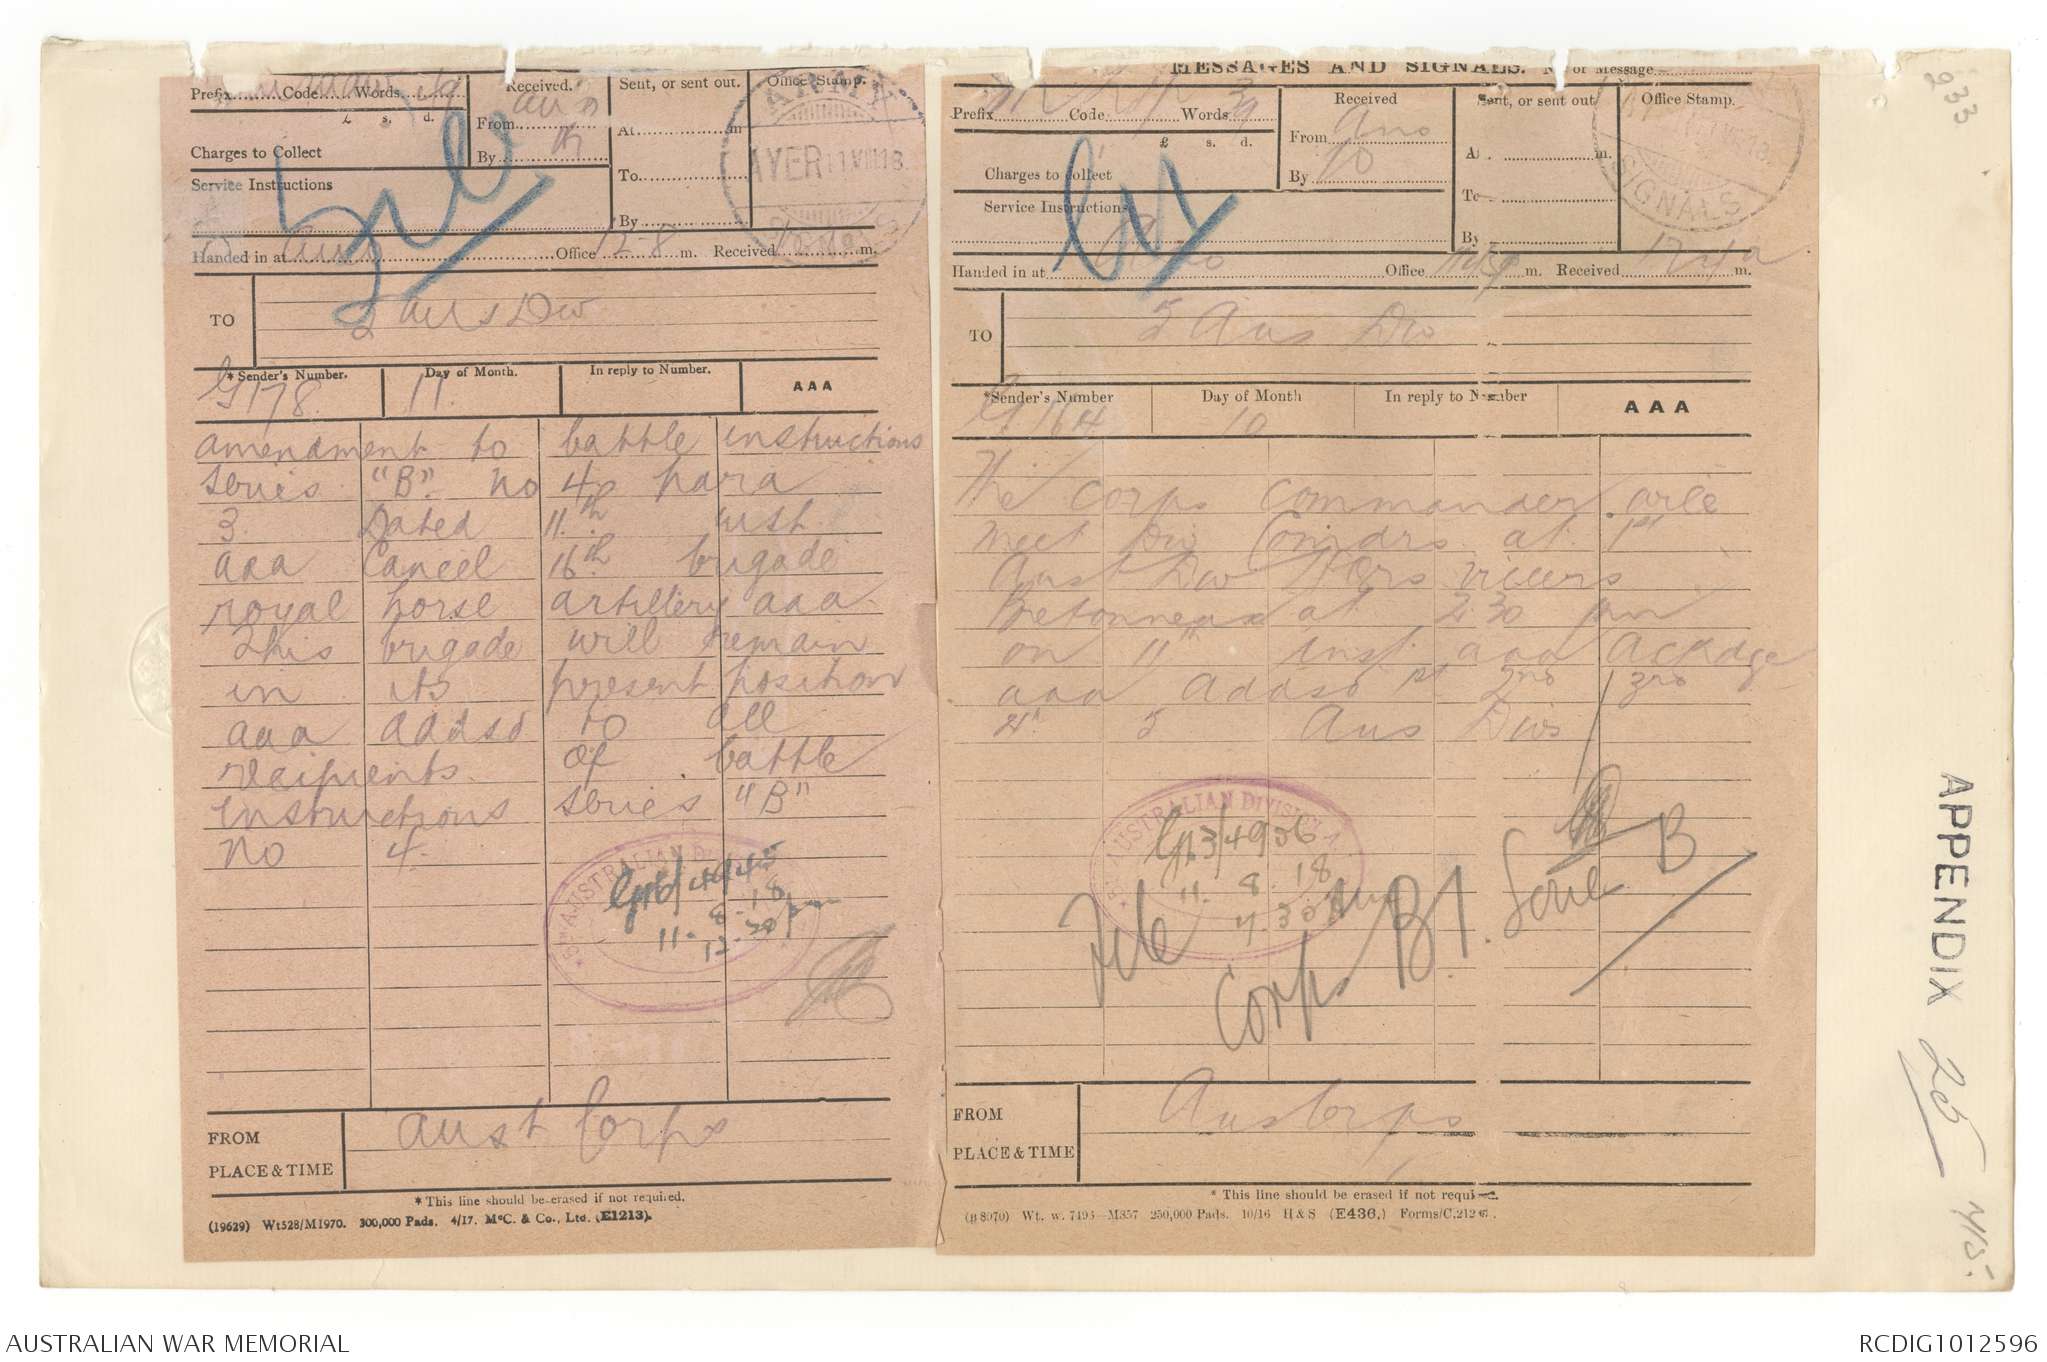 Prefix Code Words
£ s. d.
Charges to Collect
Service Instructions
Received.
From
By
Sent, or sent out.
At m
To
By
Office Stamp.
ARMY
11 VIII 18
Handed in at Office 12-8 m. Received m.
TO
5 Aus Div
* Sender's Number. Day of Month. In reply to Number. AAA
G178 11
amendment to battle instructions
series "B" no 4 para
3. Dated 11th inst.
aaa Cancel 16th brigade
royal horse artillery aaa
This brigade will remain
in its present position
aaa addsd to all
recipients of battle
instructions series "B"
no 4.
5TH AUSTRALIAN DIVISION
11.8.18
12-30 pm
FROM
PLACE & TIME
Aust Corps
* This line should be erased if not required.
(19629) Wt528/M1970. 300,000 Pads. 4/17. McC. & Co., Ltd. (E1213).
MESSAGES AND SIGNALS. No of Message
Prefix Code. Words 39
£ s. d.
Charges to collect
Service Instructions
Received
From
By
Sent, or sent out
At m.
To
By
Office Stamp.
SIGNALS
Handed in at Office m. Received m.
TO
5 Aus Div
*Sender's Number Day of Month In reply to Number AAA
G 164 10
The Corps Commander will
meet Div Comdrs at 1st
Aust Div HQrs Villers
Bretonneux at 2.30 pm
on 11th inst aaa Ackdge
aaa Addsd 1st 2nd 3rd
4th 5 Aus Divs
5TH AUSTRALIAN DIVISION
G13/4936
11. 8. 18
7.30 am
File
Corps B1. Serie B
FROM
PLACE & TIME
Aus Corps
* This line should be erased if not required.
(B 8070) Wt. w. 7495—M857 250,000 Pads. 10/16 H & S (E436.) Forms/C.2121
233
APPENDIX 26
AUSTRALIAN WAR MEMORIAL
RCDIG1012596